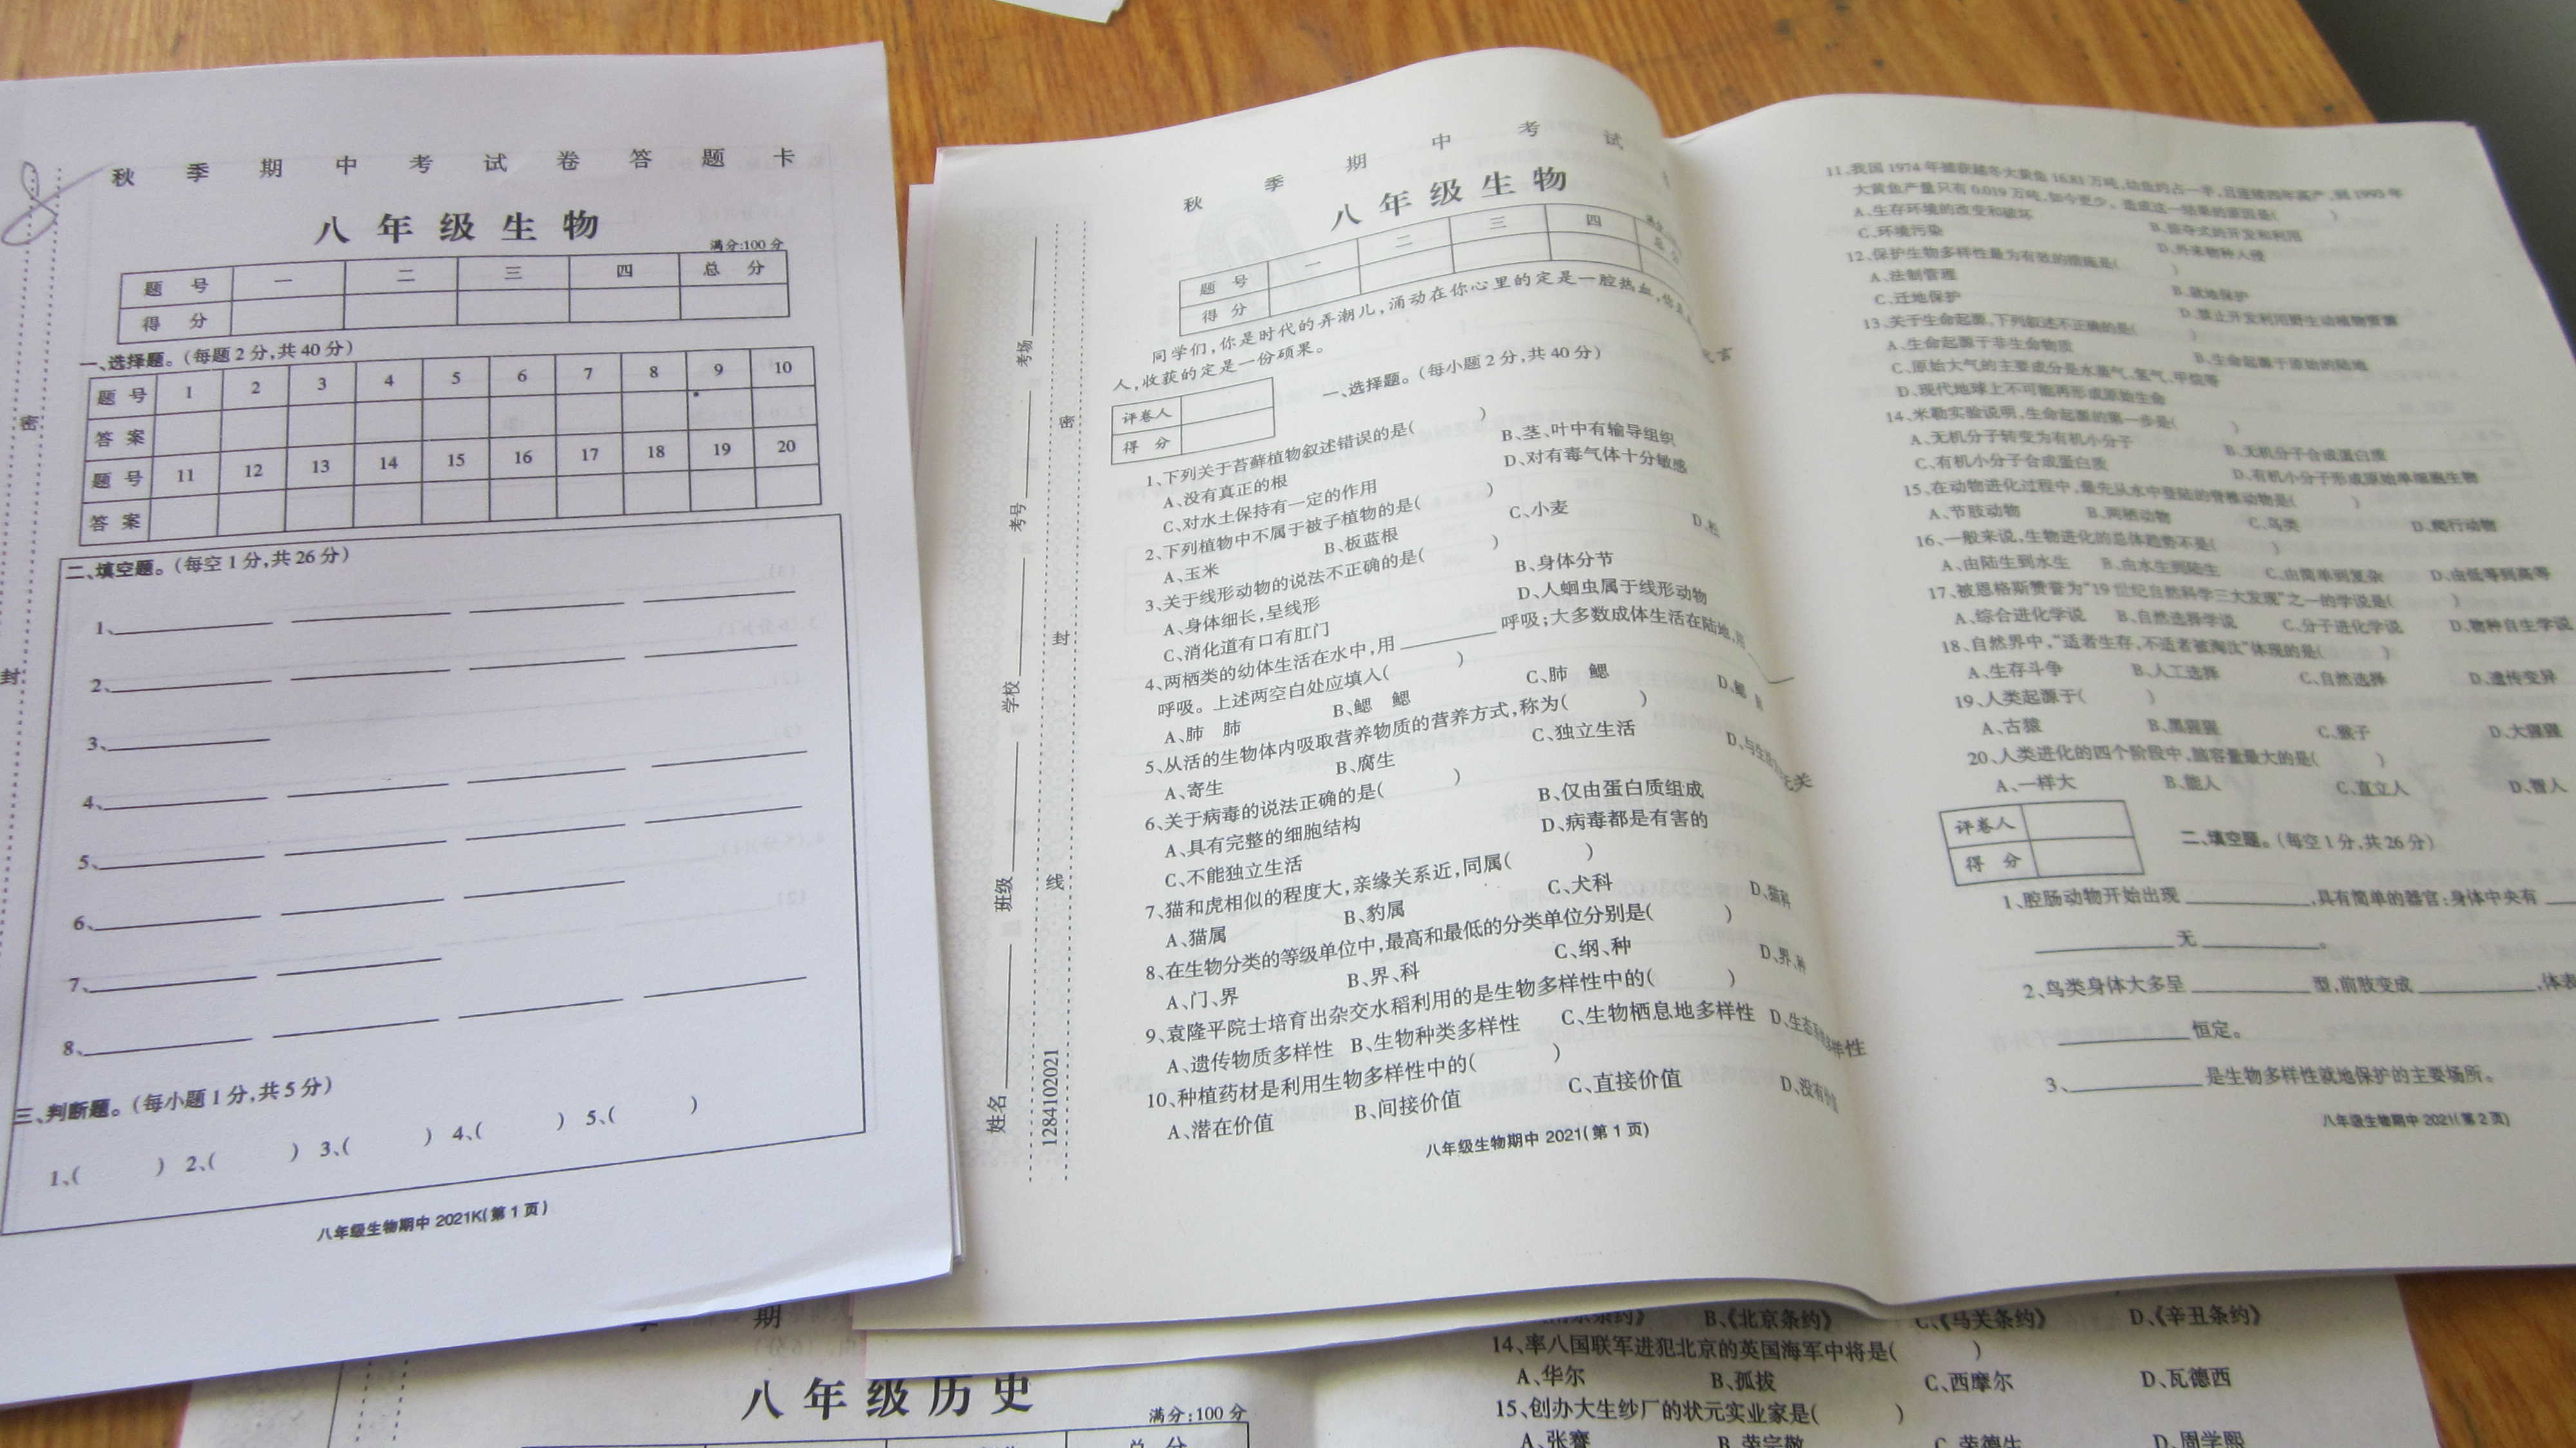 秋季期中考试卷答题卡
八年级生物
满分:100分
题号 一 二 三 四 总分
得分
一、选择题。(每题2分,共40分)
题号 1 2 3 4 5 6 7 8 9 10
答案
题号 11 12 13 14 15 16 17 18 19 20
答案
二、填空题。(每空1分,共26分)
1、
2、
3、
4、
5、
6、
7、
8、
三、判断题。(每小题1分,共5分)
1、( ) 2、( ) 3、( ) 4、( ) 5、( )
八年级生物期中2021K(第1页)
密
封
秋季期中考试
八年级生物
题号 一 二 三 四
得分
同学们,你是时代的弄潮儿,涌动在你心里的定是一腔热血,
人,收获的定是一份硕果。
评卷人
得分
一、选择题。(每小题2分,共40分)
1、下列关于苔藓植物叙述错误的是( )
A、没有真正的根 B、茎、叶中有输导组织
C、对水土保持有一定的作用 D、对有毒气体十分敏感
2、下列植物中不属于被子植物的是( )
A、玉米 B、板蓝根 C、小麦 D、松
3、关于线形动物的说法不正确的是( )
A、身体细长,呈线形 B、身体分节
C、消化道有口有肛门 D、人蛔虫属于线形动物
4、两栖类的幼体生活在水中,用________呼吸;大多数成体生活在陆地,用
呼吸。上述两空白处应填入( )
A、肺 肺 B、鳃 鳃 C、肺 鳃 D、鳃 肺
5、从活的生物体内吸取营养物质的营养方式,称为( )
A、寄生 B、腐生 C、独立生活 D、与生物无关
6、关于病毒的说法正确的是( )
A、具有完整的细胞结构 B、仅由蛋白质组成
C、不能独立生活 D、病毒都是有害的
7、猫和虎相似的程度大,亲缘关系近,同属( )
A、猫属 B、豹属 C、犬科 D、猫科
8、在生物分类的等级单位中,最高和最低的分类单位分别是( )
A、门、界 B、界、科 C、纲、种 D、界、种
9、袁隆平院士培育出杂交水稻利用的是生物多样性中的( )
A、遗传物质多样性 B、生物种类多样性 C、生物栖息地多样性 D、生态系统多样性
10、种植药材是利用生物多样性中的( )
A、潜在价值 B、间接价值 C、直接价值 D、没有价值
八年级生物期中2021(第1页)
姓名 班级 学校 考号 考场
1284102021
密
封
线
11、我国1974年捕获越冬大黄鱼16.81万吨,幼鱼约占一半,且连续四年高产,到1993年
大黄鱼产量只有0.019万吨,如今更少。造成这一结果的原因是( )
A、生存环境的改变和破坏 B、掠夺式的开发和利用
C、环境污染 D、外来物种入侵
12、保护生物多样性最为有效的措施是( )
A、法制管理 B、就地保护
C、迁地保护 D、禁止开发利用野生动植物资源
13、关于生命起源,下列叙述不正确的是( )
A、生命起源于非生命物质 B、生命起源于原始的陆地
C、原始大气的主要成分是水蒸气、氢气、甲烷等
D、现代地球上不可能再形成原始生命
14、米勒实验说明,生命起源的第一步是( )
A、无机分子转变为有机小分子 B、无机分子合成蛋白质
C、有机小分子合成蛋白质 D、有机小分子形成原始单细胞生物
15、在动物进化过程中,最先从水中登陆的脊椎动物是( )
A、节肢动物 B、两栖动物 C、鸟类 D、爬行动物
16、一般来说,生物进化的总体趋势不是( )
A、由陆生到水生 B、由水生到陆生 C、由简单到复杂 D、由低等到高等
17、被恩格斯赞誉为“19世纪自然科学三大发现”之一的学说是( )
A、综合进化学说 B、自然选择学说 C、分子进化学说 D、物种自生学说
18、自然界中,“适者生存,不适者被淘汰”体现的是( )
A、生存斗争 B、人工选择 C、自然选择 D、遗传变异
19、人类起源于( )
A、古猿 B、黑猩猩 C、猴子 D、大猩猩
20、人类进化的四个阶段中,脑容量最大的是( )
A、一样大 B、能人 C、直立人 D、智人
评卷人
得分
二、填空题。(每空1分,共26分)
1、腔肠动物开始出现________,具有简单的器官;身体中央有
________无________。
2、鸟类身体大多呈________型,前肢变成________,体表
________恒定。
3、________是生物多样性就地保护的主要场所。
八年级生物期中2021(第2页)
期
八年级历史
满分:100分
总分
条约》 B、《北京条约》 C、《马关条约》 D、《辛丑条约》
14、率八国联军进犯北京的英国海军中将是( )
A、华尔 B、孤拔 C、西摩尔 D、瓦德西
15、创办大生纱厂的状元实业家是( )
A、张謇 B、荣宗敬 C、荣德生 D、周学熙